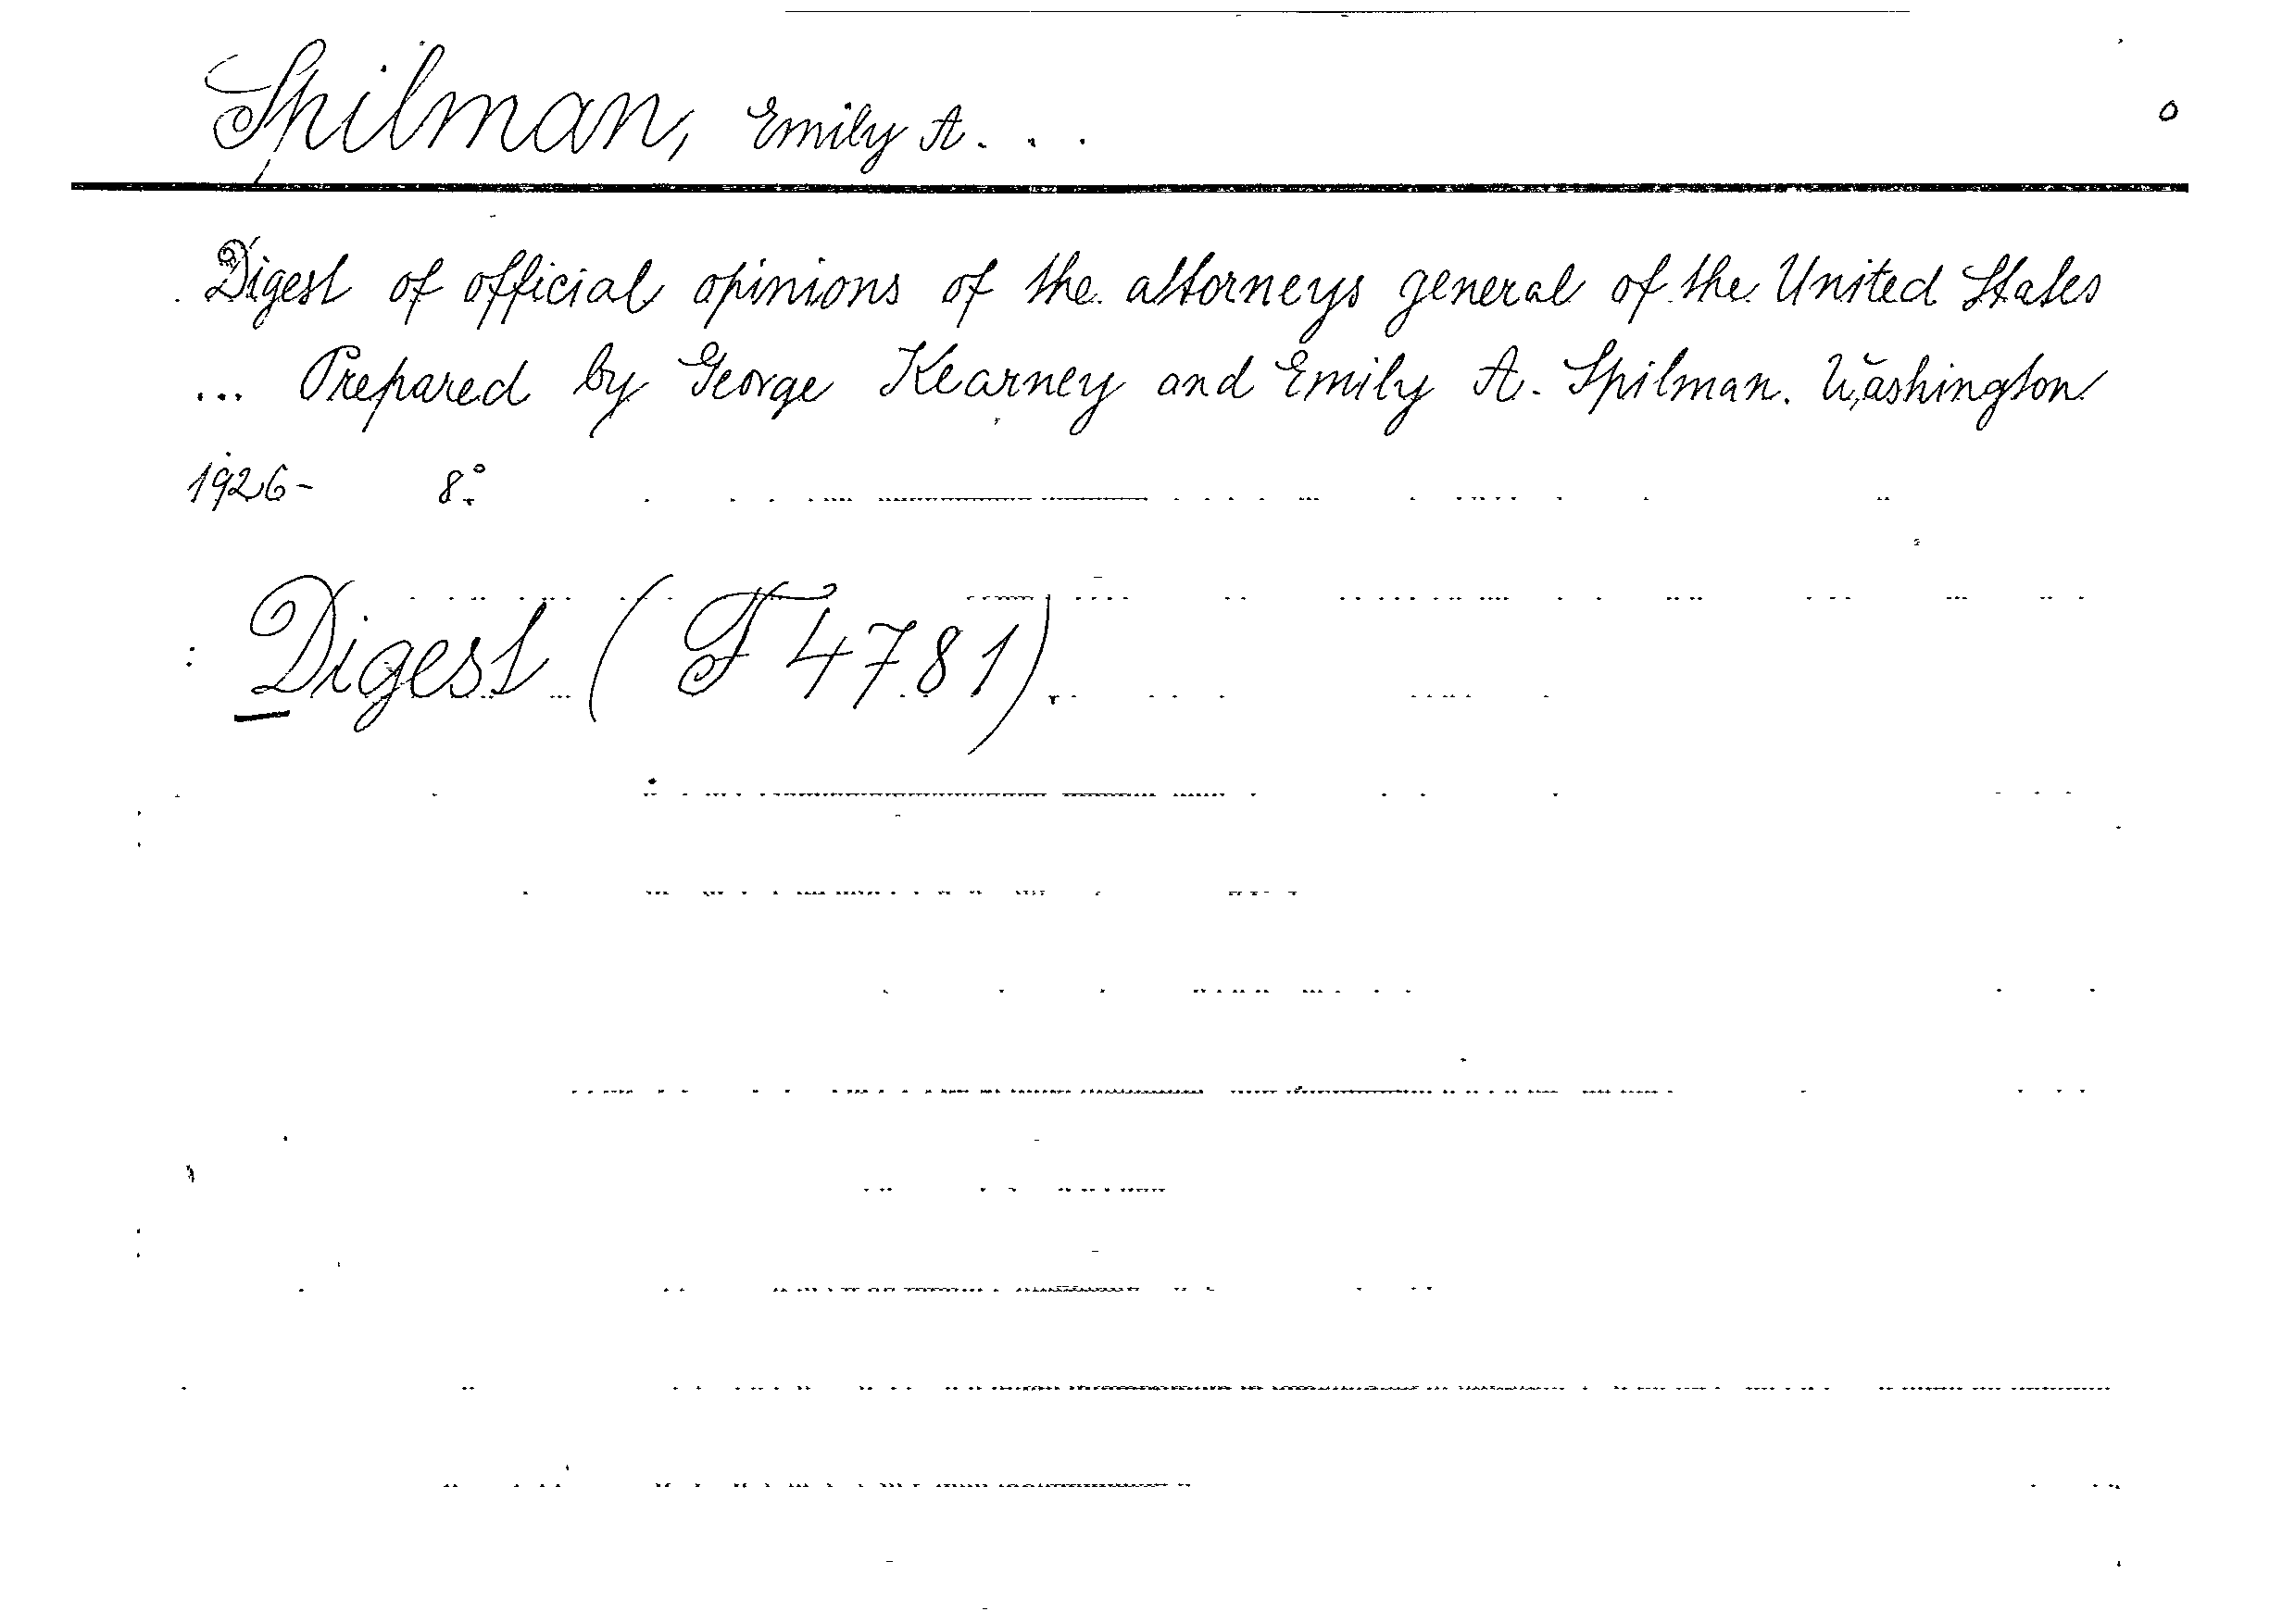 Spilman, Emily A. . .
o
Digest of official opinions of the attorneys general of the United States
... Prepared by George Kearney and Emily A. Spilman. Washington
1926- 8°.
Digest (F 4781).